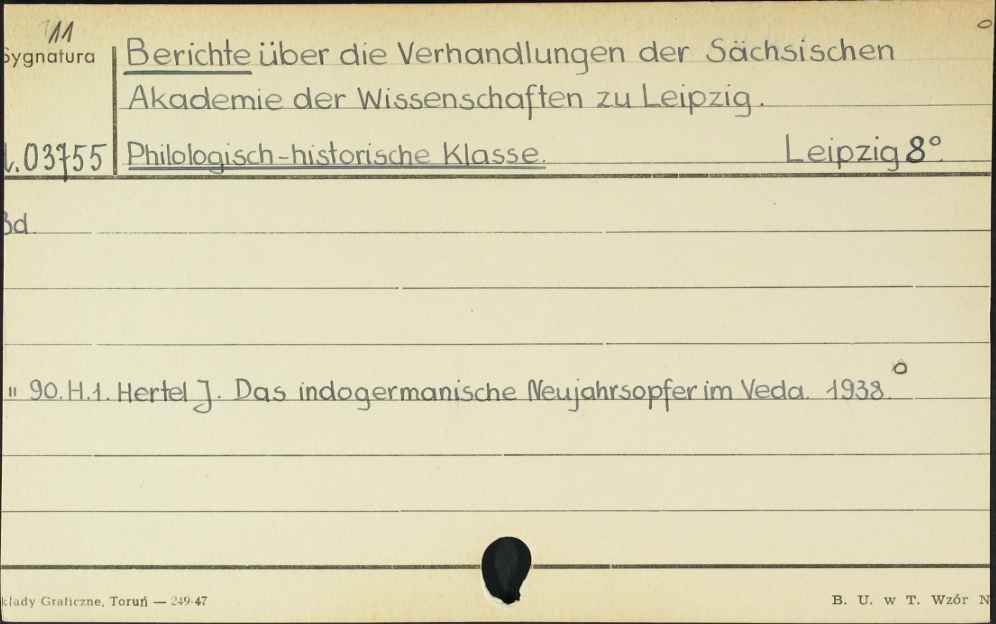 11
Sygnatura
Berichte über die Verhandlungen der Sächsischen
Akademie der Wissenschaften zu Leipzig.
.03755 Philologisch-historische Klasse. Leipzig 8°
Bd.
" 90. H.1. Hertel J. Das indogermanische Neujahrsopfer im Veda. 1938.
kłady Graficzne, Toruń — 249-47
B. U. w T. Wzór N